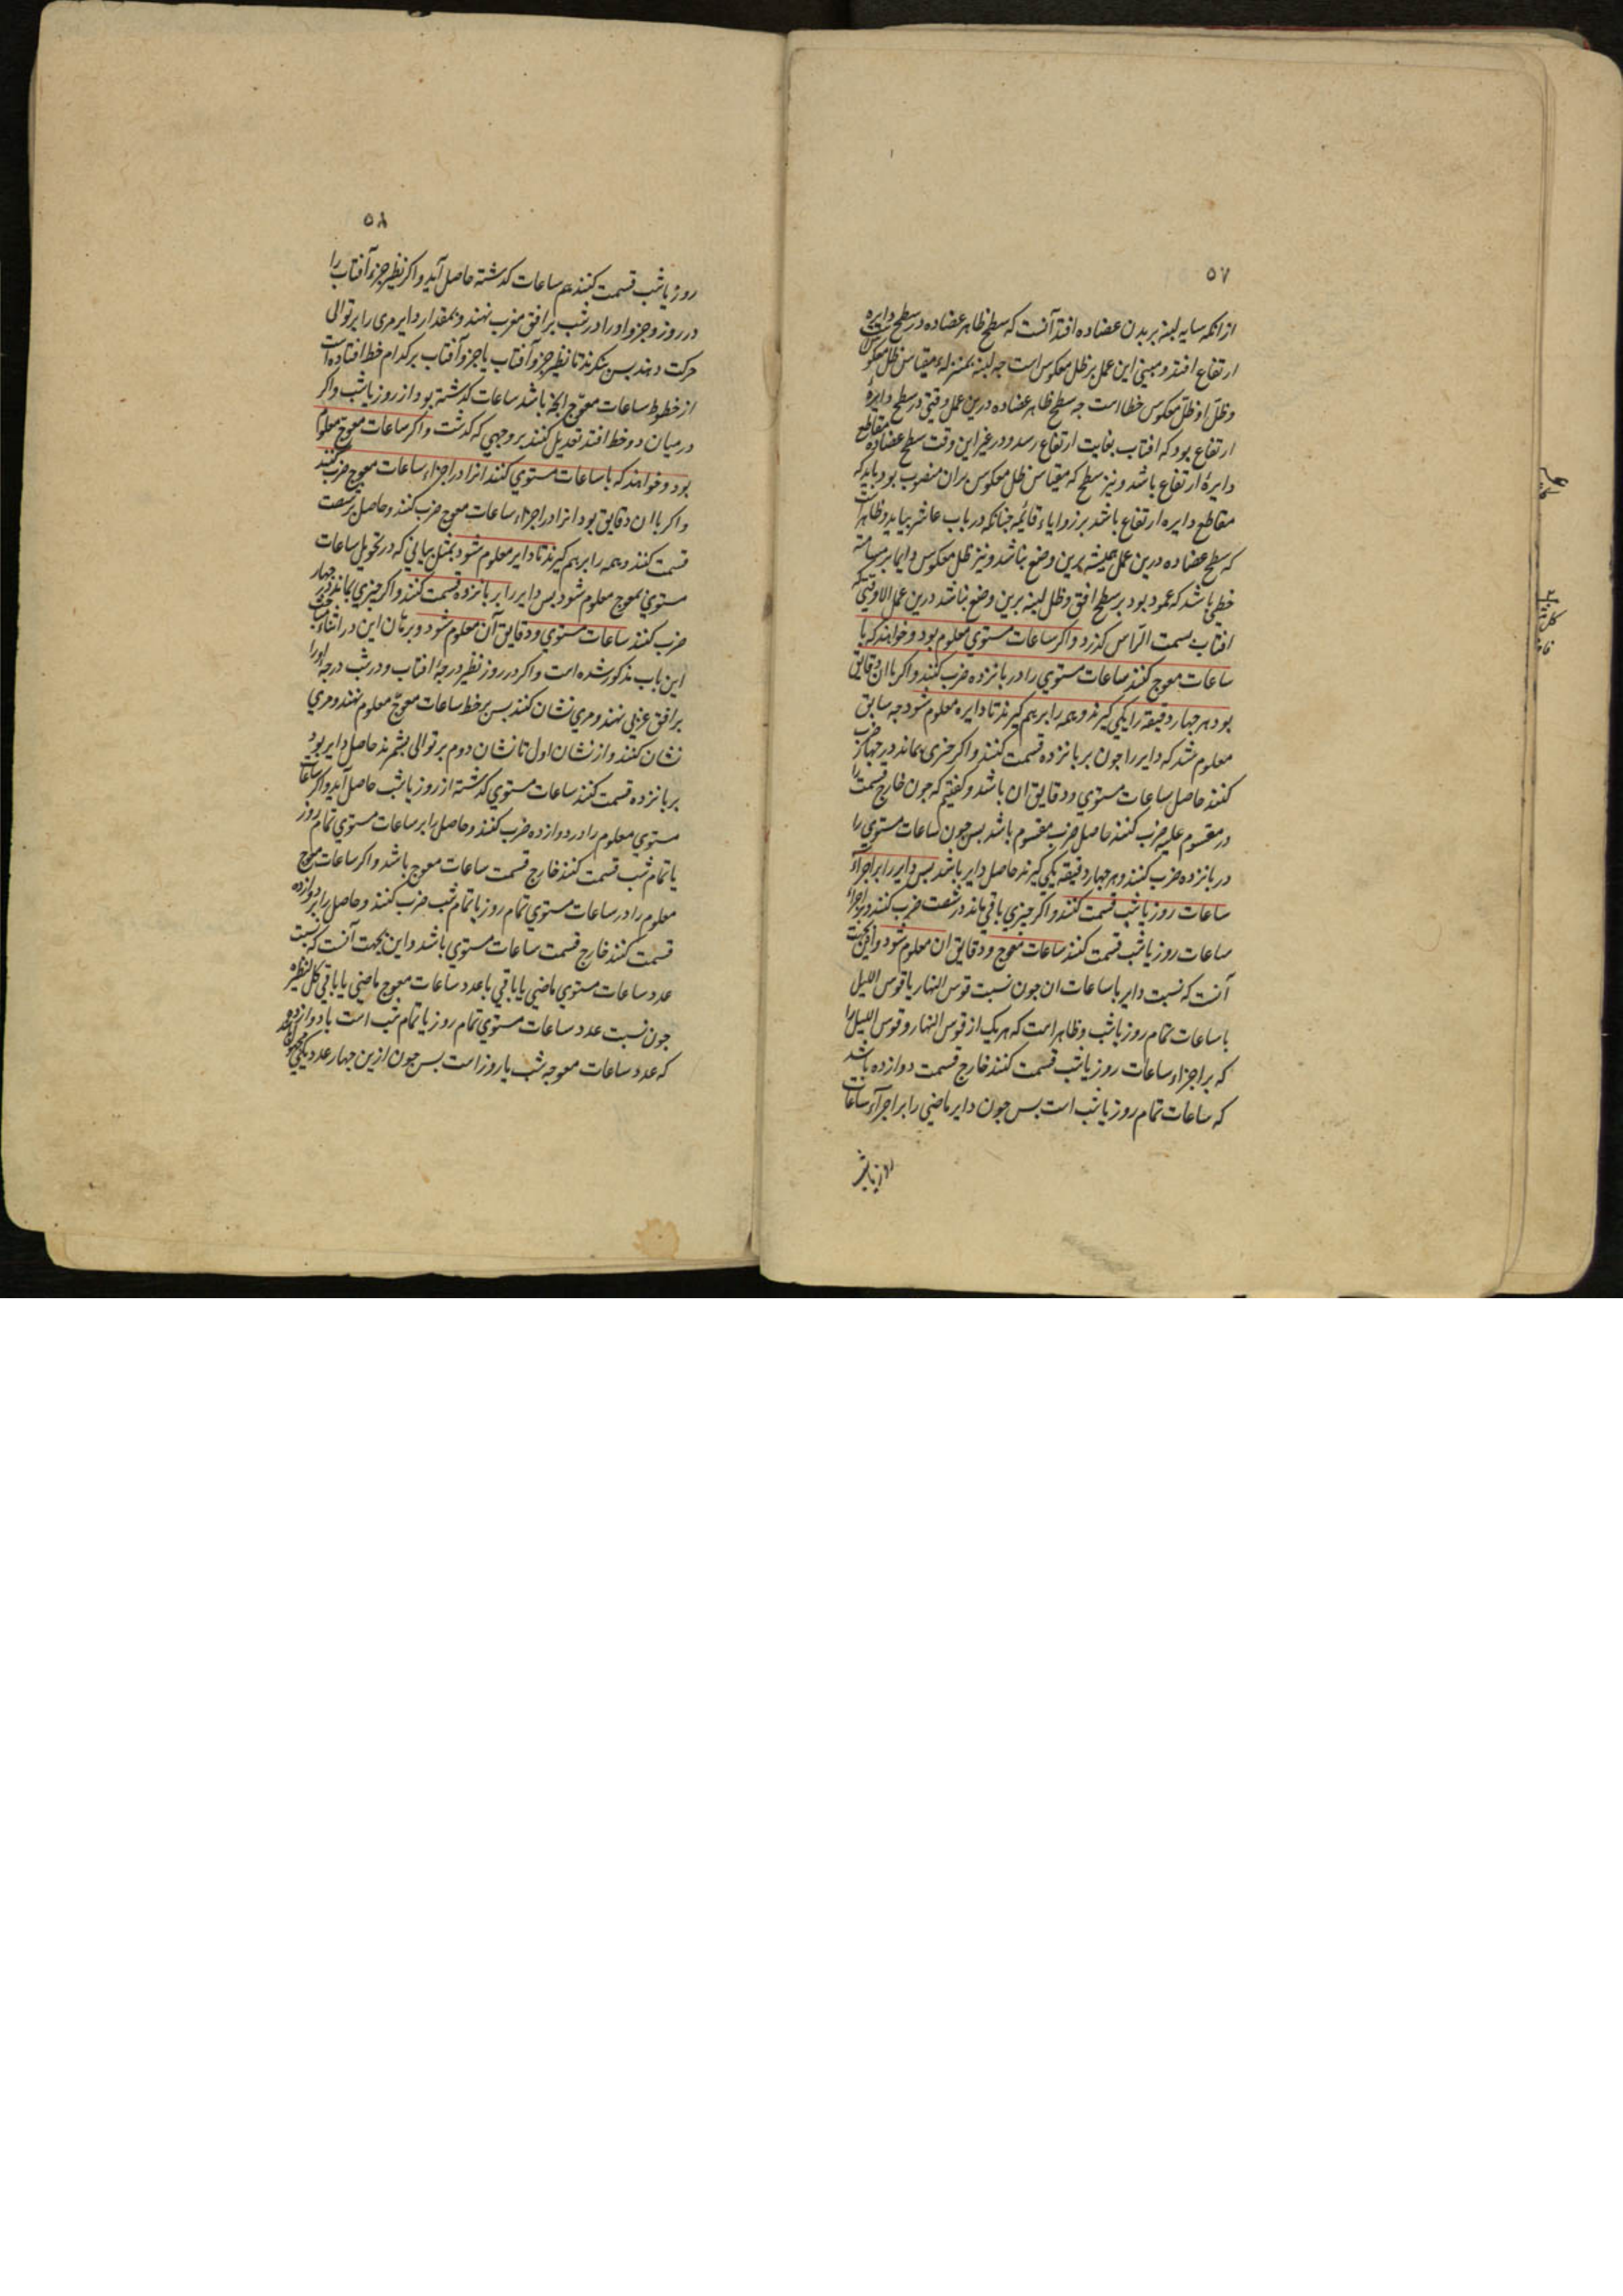 ۵۷
ازانکه سایه لبنه بر بدن عضاده افتد آنست که سطح ظاهر عضاده در سطح دایره
ارتفاع افتد و مبنی این عمل بر ظل معکوس است چه لبنه بمنزله مقیاس ظل معکوس است
و ظل او ظل معکوس خطا است چه سطح ظاهر عضاده درین عمل وقتی در سطح دایرۀ
ارتفاع بود که افتاب بغایت ارتفاع رسد و در غیر این وقت سطح عضاده مقاطع
دایرۀ ارتفاع باشد و نیز سطح که مقیاس ظل معکوس بران منصوب بود باید که
مقاطع دایره ارتفاع باشد بر زوایاء قائمه چنانکه در باب عاشر بیاید و ظاهر است
که سطح عضاده درین عمل همیشه برین وضع نباشد و نیز ظل معکوس دایما بر مسامته
خطی باشد که عمود بود بر سطح افق و ظل لبنه برین وضع نباشد درین عمل الا وقتی که
افتاب بسمت الرأس کذرد و اکر ساعات مستوی معلوم بود و خواهند که با
ساعات معوج کنند ساعات مستوی را در بانزده ضرب کنند و اکر با ان دقایق
بود هر چهار دقیقه را یکی کیرند و همه را بر هم کیرند تا دایره معلوم شود چه سابق
معلوم شد که دایر را چون بر بانزده قسمت کنند و اکر چیزی بماند در چهار ضرب
کنند حاصل ساعات مستوی و دقایق ان باشد و کفتیم که چون خارج قسمت را
در مقسوم علیه ضرب کنند حاصل ضرب مقسوم باشد بس چون ساعات مستوی را
در بانزده ضرب کنند و هر چهار دقیقه یکی کیرند حاصل دایر باشد بس دایر را بر اجزآء
ساعات روز یا شب قسمت کنند و اکر چیزی باقی ماند در شصت ضرب کنند و بر اجزاء
ساعات روز یا شب قسمت کنند ساعات معوج و دقایق ان معلوم شود و این بجهت
آنست که نسبت دایر با ساعات ان چون نسبت قوس النهار یا قوس اللیل
با ساعات تمام روز یا شب و ظاهر است که هر یک از قوس النهار و قوس اللیل را
که بر اجزاء ساعات روز یا شب قسمت کنند خارج قسمت دوازده باشد
که ساعات تمام روز یا شب است بس چون دایر ماضی را بر اجزآء ساعات
روز یا شب
۵۸
روز یا شب قسمت کنند هم ساعات کذشته حاصل آید و اکر نظیر جزو آفتاب را
در روز و جزو او را در شب بر افق مغرب نهند و بمقدار دایر مری را بر توالی
حرکت دهند بس بنکرند تا نظیر جزو آفتاب یا جزو آفتاب بر کدام خط افتاده است
از خطوط ساعات معوج آنچه باشد ساعات کذشته بود از روز یا شب و اکر
در میان دو خط افتد تعدیل کنند بر وجهی که کذشت و اکر ساعات معوج معلوم
بود و خواهند که با ساعات مستوی کنند انرا در اجزاء ساعات معوج ضرب کنند
و اکر با ان دقایق بود انرا در اجزاء ساعات معوج ضرب کنند و حاصل بر شصت
قسمت کنند و همه را بر هم کیرند تا دایر معلوم شود بمثل بیانی که در تحویل ساعات
مستوی بمعوج معلوم شود بس دایر را بر بانزده قسمت کنند و اکر چیزی بماند در چهار
ضرب کنند ساعات مستوی و دقایق آن معلوم شود و برهان این در اثناء مباحث
این باب مذکور شده است و اکر در روز نظیر درجۀ افتاب و در شب درجه او را
بر افق غربی نهند و مری نشان کنند بس بر خط ساعات معوج معلوم نهند و مری
نشان کنند و از نشان اول تا نشان دوم بر توالی بشمرند حاصل دایر بود
بر بانزده قسمت کنند ساعات مستوی کذشته از روز یا شب حاصل آید و اکر ساعات
مستوی معلوم را در دوازده ضرب کنند و حاصل را بر ساعات مستوی تمام روز
یا تمام شب قسمت کنند خارج قسمت ساعات معوج باشد و اکر ساعات معوج
معلوم را در ساعات مستوی تمام روز یا تمام شب ضرب کنند و حاصل را بر دوازده
قسمت کنند خارج قسمت ساعات مستوی باشد و این بجهت آنست که نسبت
عدد ساعات مستوی ماضی یا باقی با عدد ساعات معوج ماضی یا باقی کل لنظیره
چون نسبت عدد ساعات مستوی تمام روز یا تمام شب است با دوازده
که عدد ساعات معوجه شب یا روز است بس چون ازین چهار عدد یکی مجهول باشد